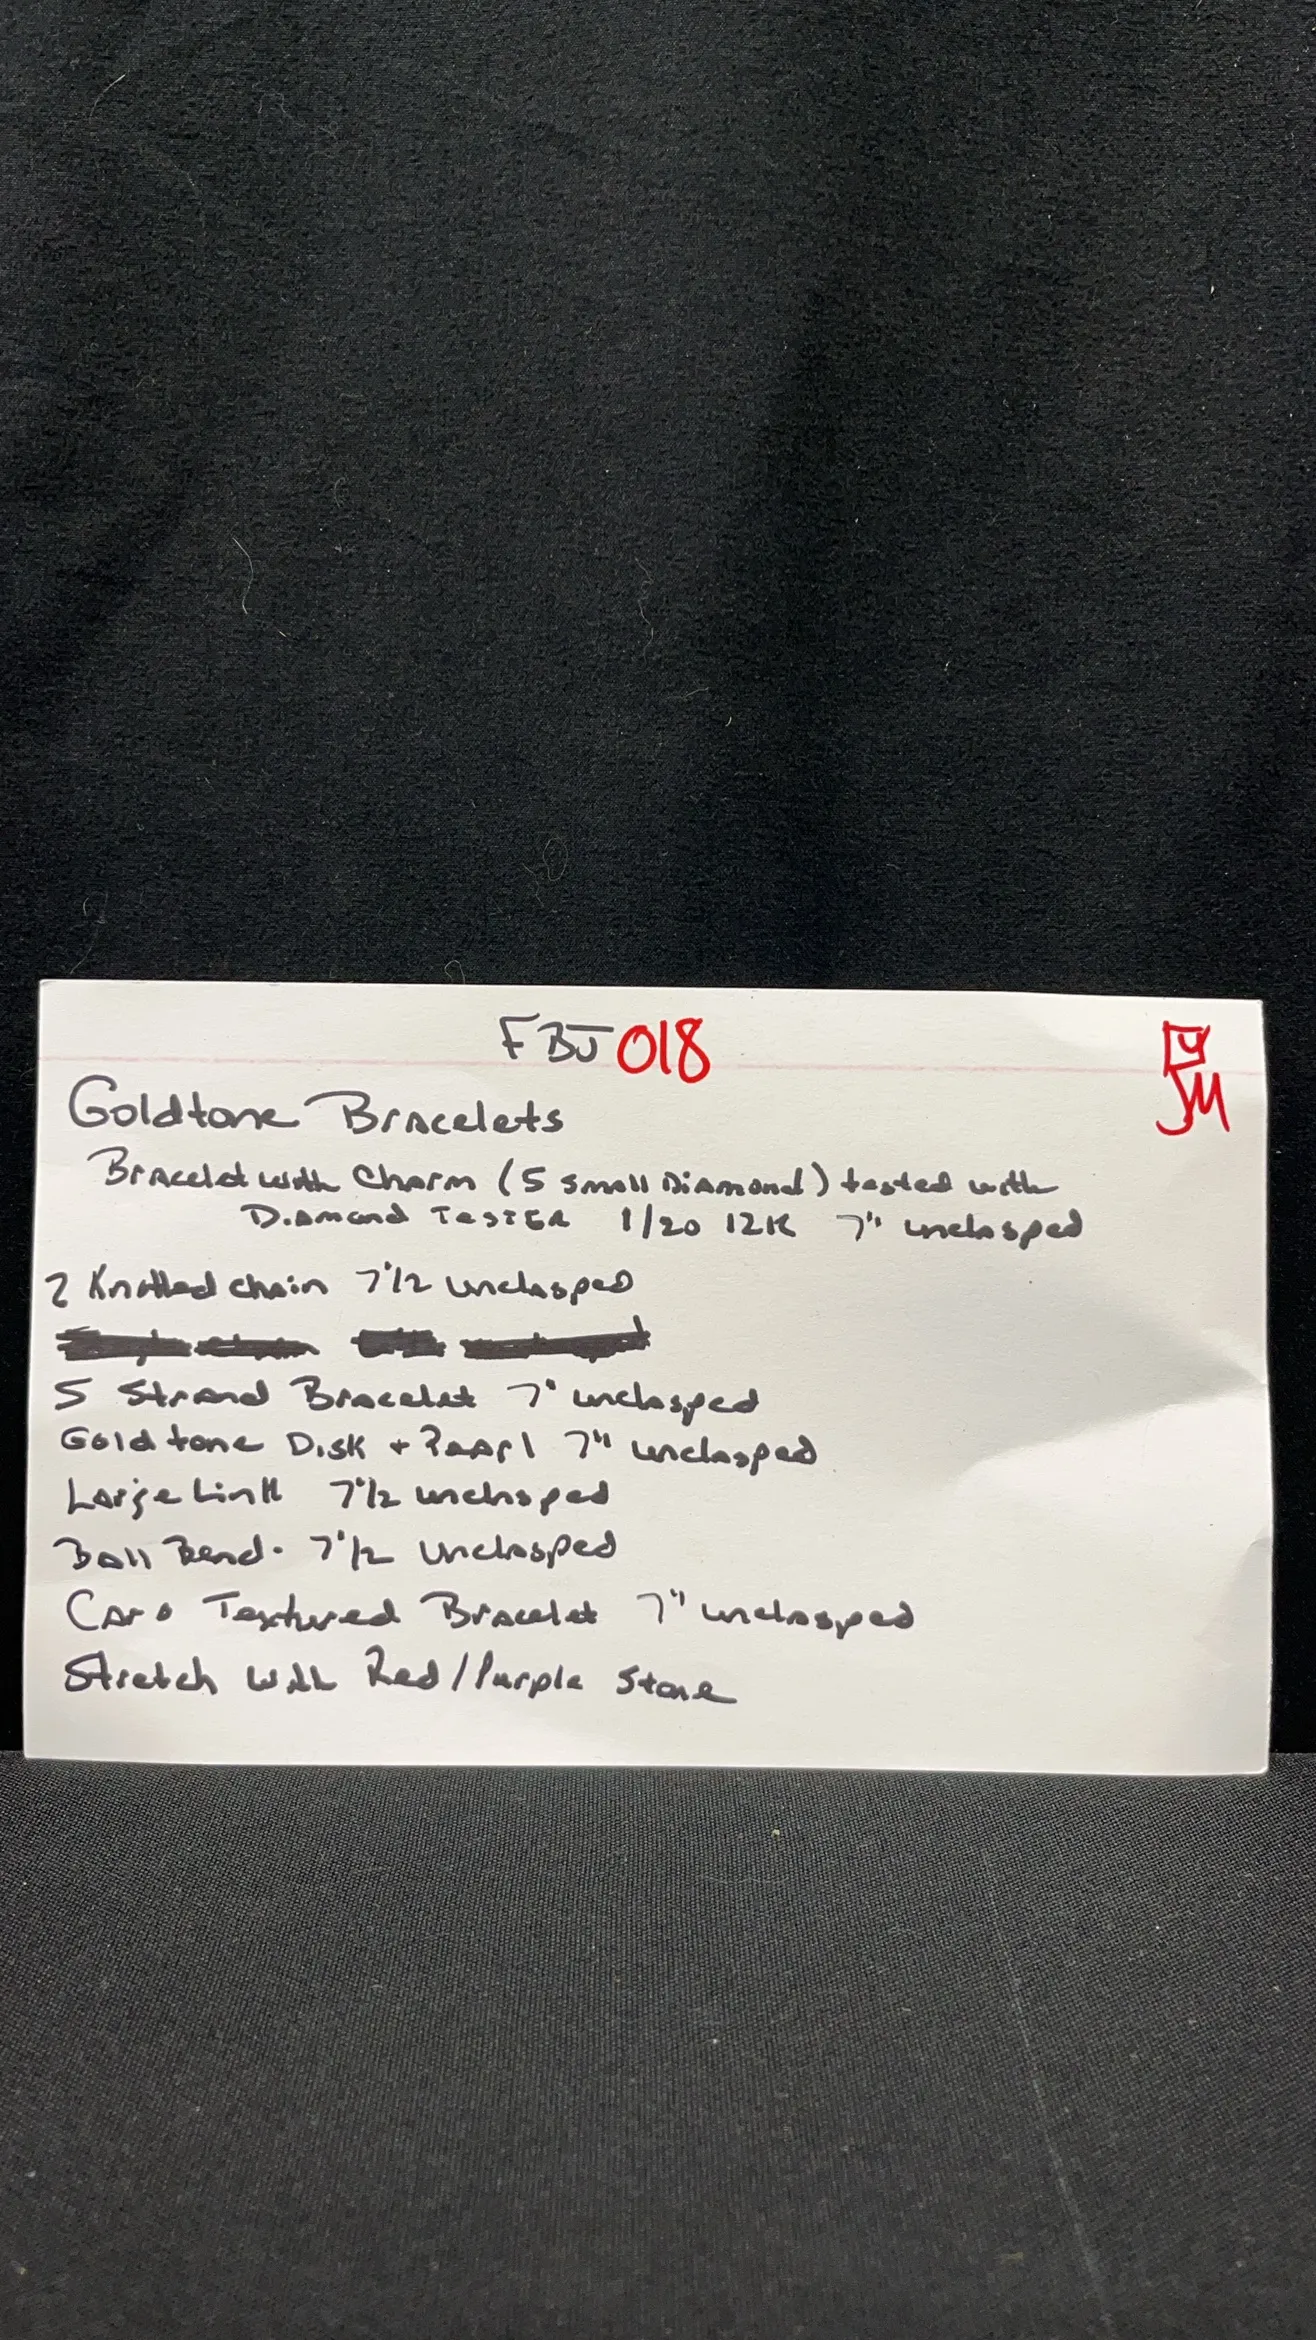 FBJ018
JM
Goldtone Bracelets
Bracelet with Charm (5 small Diamond) tested with
Diamond TesTER 1/20 12K 7" unclasped
2 Knotted chain 7 1/2 unclasped
5 Strand Bracelet 7" unclasped
Goldtone Disk + Pearl 7" unclasped
Large Link 7 1/2 unclasped
Ball Bend. 7 1/2 unclasped
Caro Textured Bracelet 7" unclasped
Stretch with Red/Purple Stone